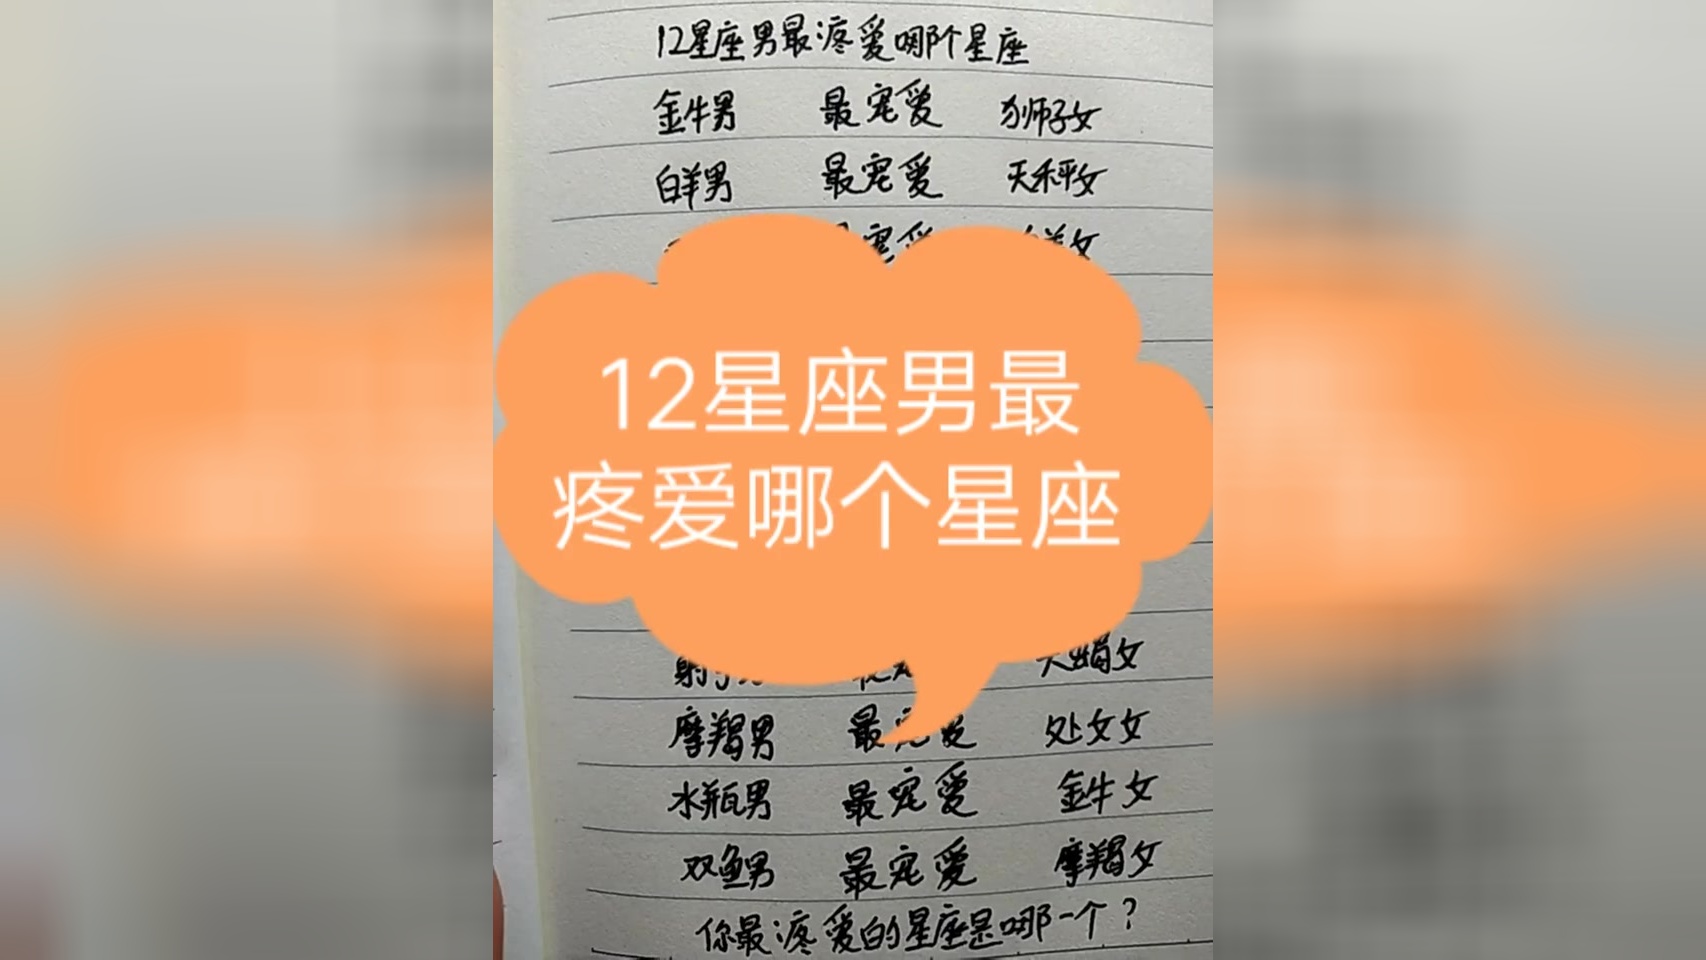 12星座男最疼爱哪个星座
金牛男 最宠爱 狮子女
白羊男 最宠爱 天秤女
宠爱 女
12星座男最
疼爱哪个星座
射手 天蝎女
摩羯男 最宠爱 处女女
水瓶男 最宠爱 金牛女
双鱼男 最宠爱 摩羯女
你最疼爱的星座是哪一个?